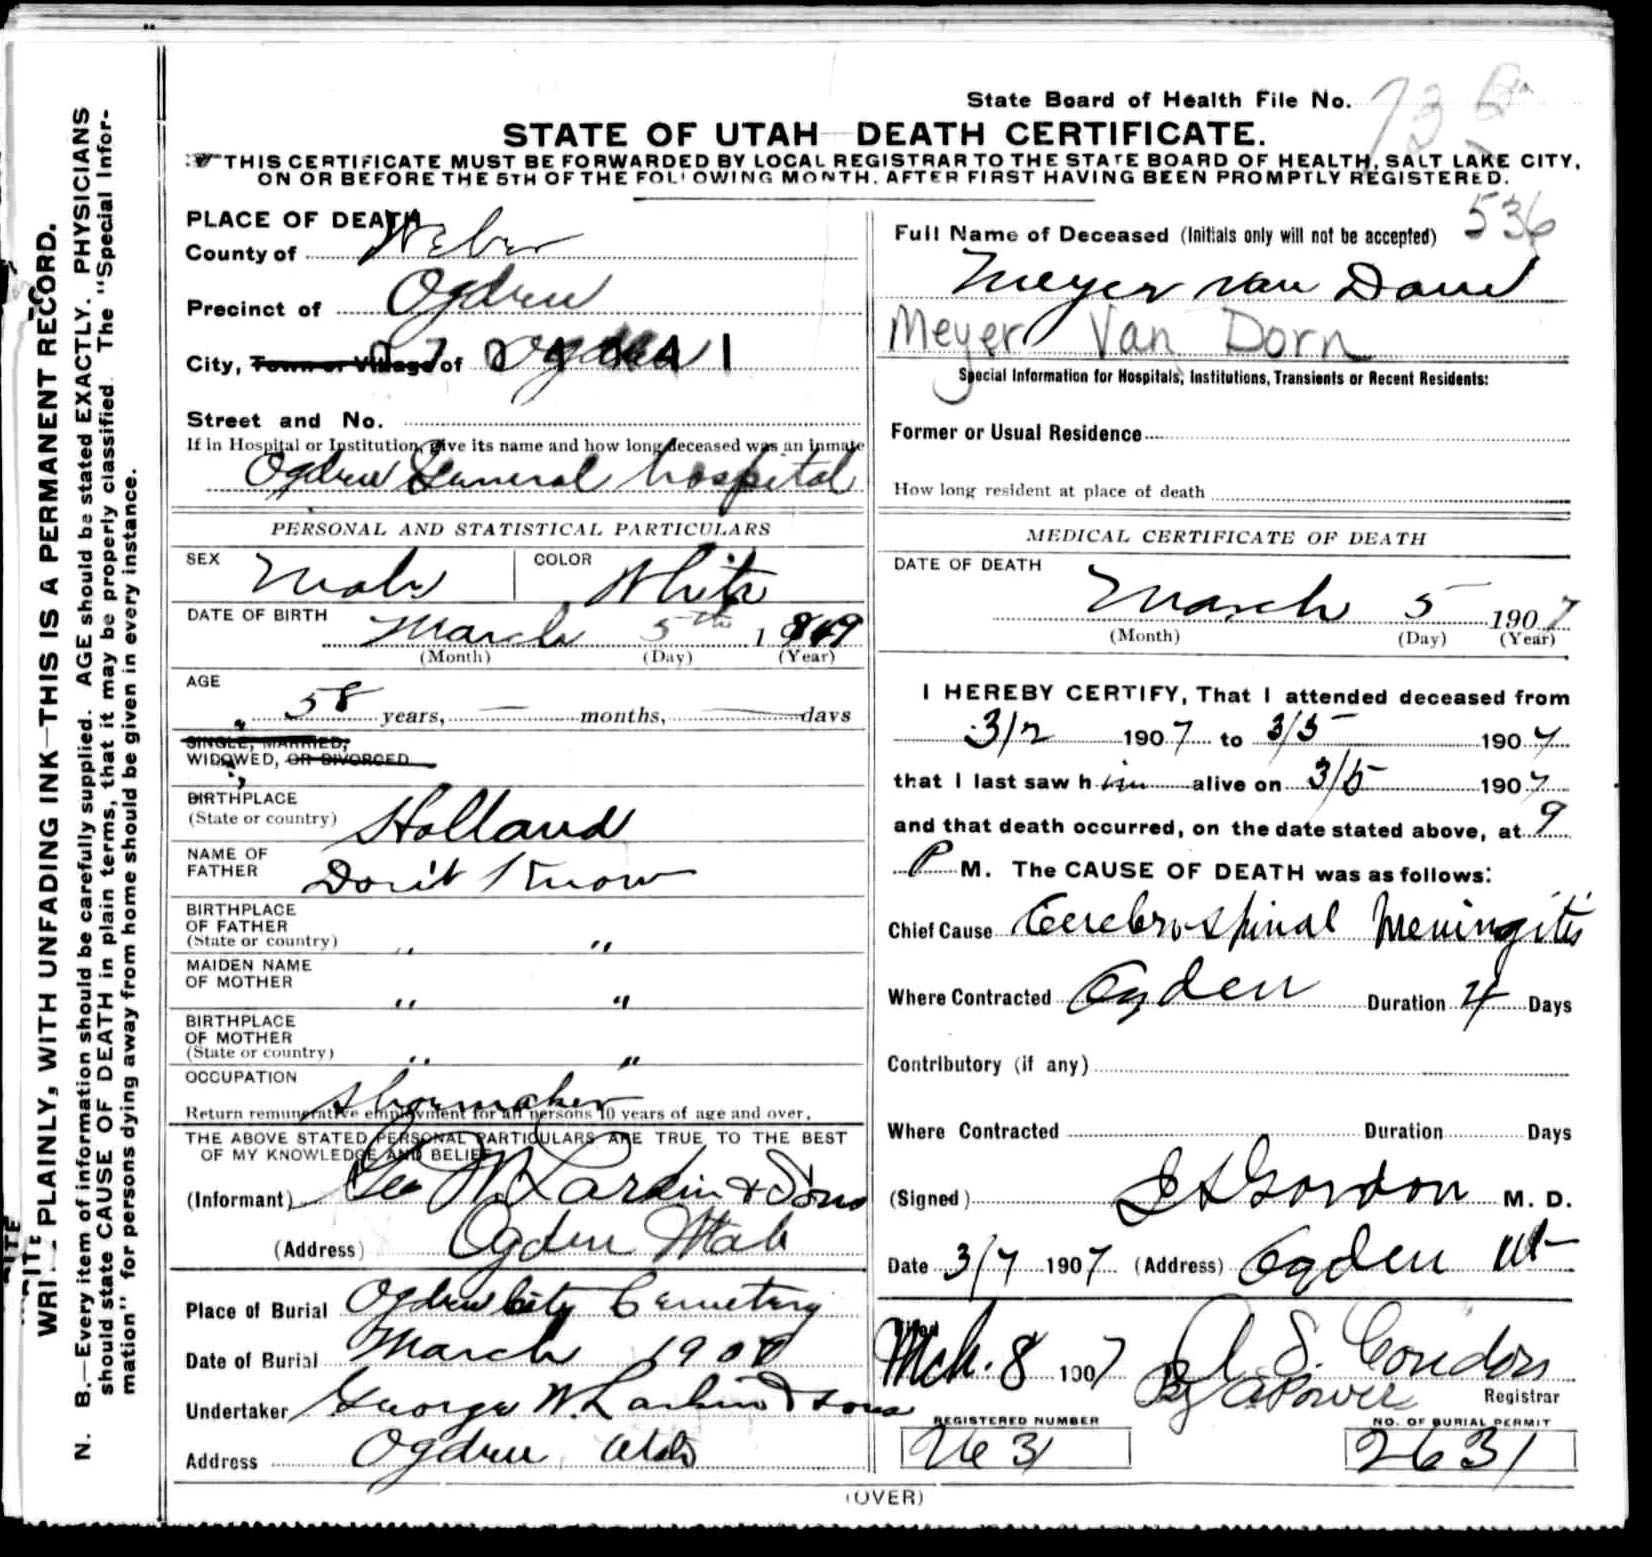 State Board of Health File No.
STATE OF UTAH—DEATH CERTIFICATE.
THIS CERTIFICATE MUST BE FORWARDED BY LOCAL REGISTRAR TO THE STATE BOARD OF HEALTH, SALT LAKE CITY,
ON OR BEFORE THE 5TH OF THE FOLLOWING MONTH, AFTER FIRST HAVING BEEN PROMPTLY REGISTERED.
WRITE PLAINLY, WITH UNFADING INK—THIS IS A PERMANENT RECORD.
N. B.—Every item of information should be carefully supplied. AGE should be stated EXACTLY. PHYSICIANS
should state CAUSE OF DEATH in plain terms, that it may be properly classified. The "Special Infor-
mation" for persons dying away from home should be given in every instance.
PLACE OF DEATH
County of Weber
Precinct of Ogden
City, Town or Village of Ogden
Street and No.
If in Hospital or Institution, give its name and how long deceased was an inmate
Ogden General hospital
PERSONAL AND STATISTICAL PARTICULARS
SEX Male COLOR White
DATE OF BIRTH March 5th 1849
(Month) (Day) (Year)
AGE
58 years, — months, — days
SINGLE, MARRIED,
WIDOWED, OR DIVORCED
BIRTHPLACE
(State or country) Holland
NAME OF
FATHER Don't Know
BIRTHPLACE
OF FATHER
(State or country) " "
MAIDEN NAME
OF MOTHER " "
BIRTHPLACE
OF MOTHER
(State or country) " "
OCCUPATION Shoemaker
Return remunerative employment for all persons 10 years of age and over.
THE ABOVE STATED PERSONAL PARTICULARS ARE TRUE TO THE BEST
OF MY KNOWLEDGE AND BELIEF
(Informant) Geo W. Larkin & Sons
(Address) Ogden Utah
Place of Burial Ogden City Cemetery
Date of Burial March 1907
Undertaker George W. Larkin & sons
Address Ogden Utah
536
Full Name of Deceased (Initials only will not be accepted)
Meyer van Dorn
Meyer Van Dorn
Special Information for Hospitals, Institutions, Transients or Recent Residents:
Former or Usual Residence
How long resident at place of death
MEDICAL CERTIFICATE OF DEATH
DATE OF DEATH
March 5 1907
(Month) (Day) (Year)
I HEREBY CERTIFY, That I attended deceased from
3/2 1907 to 3/5 1907
that I last saw him alive on 3/5 1907
and that death occurred, on the date stated above, at 9
P M. The CAUSE OF DEATH was as follows:
Chief Cause Cerebro-spinal Meningitis
Where Contracted Ogden Duration 4 Days
Contributory (if any)
Where Contracted Duration Days
(Signed) Gordon M. D.
Date 3/7 1907 (Address) Ogden Ut
Filed
Mch. 8 1907 S. Condon
By Power Registrar
REGISTERED NUMBER NO. OF BURIAL PERMIT
2631 2631
(OVER)